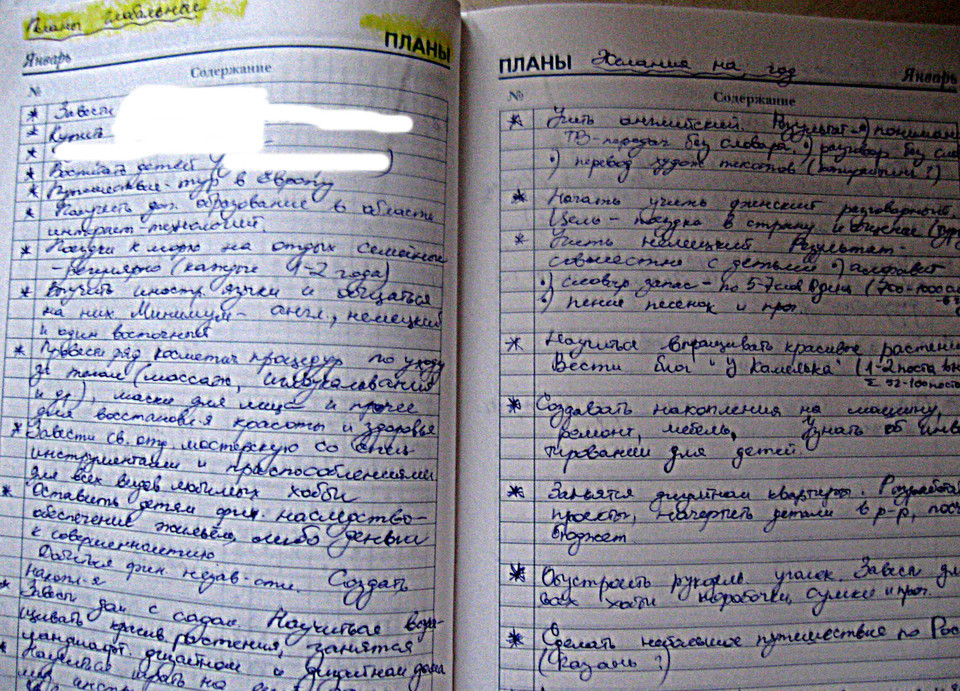 Планы глобальные
ПЛАНЫ
Январь
№ Содержание
* Завести
* Купить
*
* Воспитать детей (
)
* Путешествие-тур в Европу
* Получить доп. образование в области
интернет-технологий.
* Поездки к морю на отдых семейные
-регулярно (каждые 1-2 года)
* Выучить иностр. языки и общаться
на них. Минимум - англ., немецкий
и один восточный
* Провести ряд косметич. процедур по уходу
за телом (массаж,
и др), маски для лица и прочее
для восстановл-я красоты и здоровья
* Завести св. отд. мастерскую со спец.
инструментами и приспособлениями
для всех видов любимых хобби
* Оставить детям фин. наследство-
обеспечение жильём, либо деньги
к совершеннолетию.
Добиться фин. незав-сти. Создать
накопл-я
* Завести дом с садом. Научиться выра-
щивать красив. растения, занятся
ландшафт. дизайном и дизайном дома
* Научиться играть на
ПЛАНЫ Желания на год
Январь
№ Содержание
* Учить английский. Результат •) понимани
ТВ-передач без словаря. •) разговор без сло
•) перевод худож. текстов (
?)
* Начать учить
разговорный
Цель - поездка в страну и общение
* Учить немецкий. Результат -
совместно с детьми •) алфавит
•) словар. запас - по 5-7 слов в день (700-1000
•) пение песенок и проч.
* Научиться выращивать красивые растения
Вести блог "У Камелька" (1-2 поста в
Σ 92-100 посто
* Создавать накопления на машину,
ремонт, мебель, Узнать об инве
тировании для детей
* Заняться дизайном квартиры. Разработа
проекты, начертить детали в р-р, посч
бюджет
* Обустроить рукодел. уголок. Завести для
всех хобби коробочки, сумки и проч.
* Сделать небольшое путешествие по Рос
(Казань?)